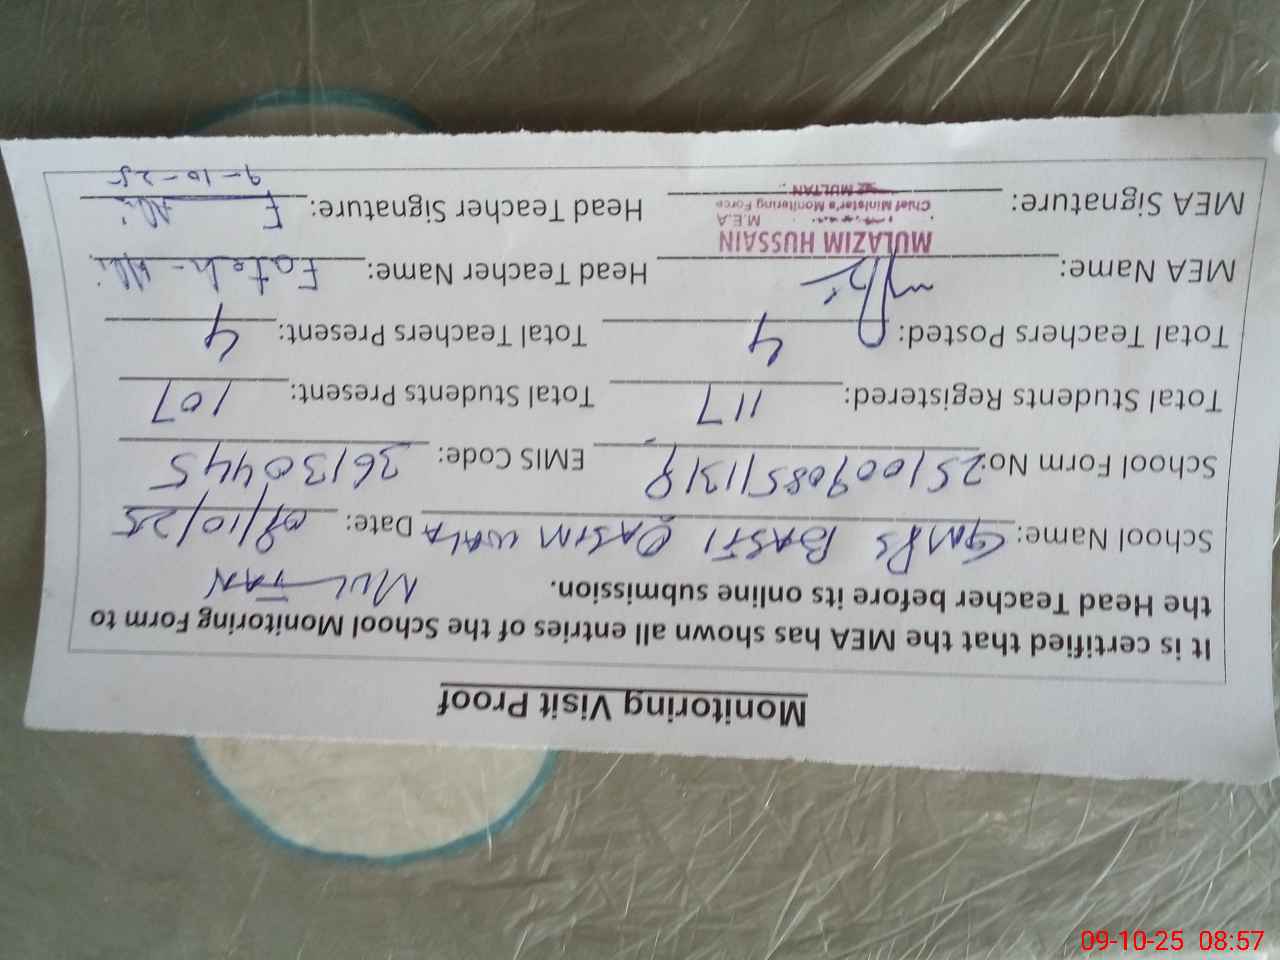 Monitoring Visit Proof
It is certified that the MEA has shown all entries of the School Monitoring Form to
the Head Teacher before its online submission. MULTAN
School Name: GMPS BASTI QASIM WALA Date: 09/10/25
School Form No: 251009085113 EMIS Code: 36130445
Total Students Registered: 117 Total Students Present: 107
Total Teachers Posted: 4 Total Teachers Present: 4
MEA Name: Head Teacher Name: Fateh - Ali
MULAZIM HUSSAIN
M.E.A
Chief Minister's Monitoring Force
MULTAN
MEA Signature: Head Teacher Signature: F Ali
9-10-25
09-10-25 08:57